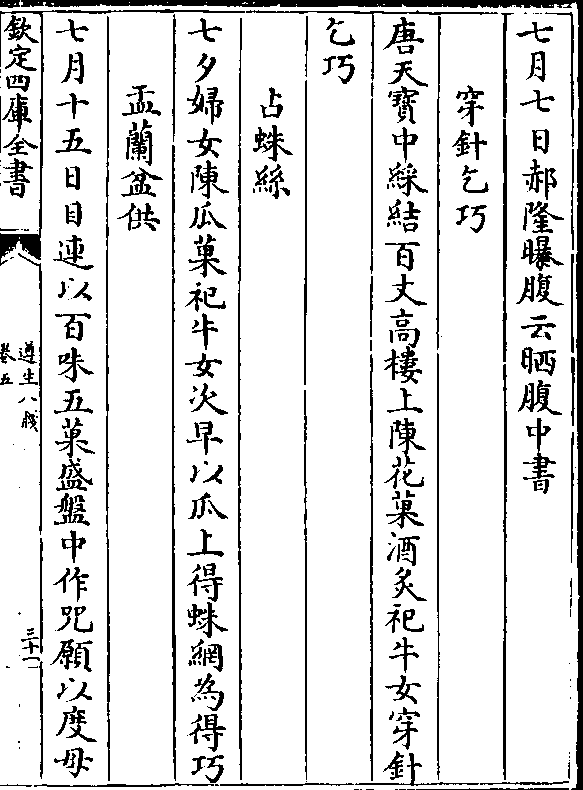 七月七日郝隆曝腹云晒腹中書
穿針乞巧
唐天寳中綵結百丈高樓上陳花菓酒炙祀牛女穿針
乞巧
占蛛絲
七夕婦女陳瓜菓祀牛女次早以瓜上得蛛網為得巧
盂蘭盆供
七月十五日目連以百味五菓盛盤中作咒願以度母
欽定四庫全書
遵生八牋
卷五
三十一